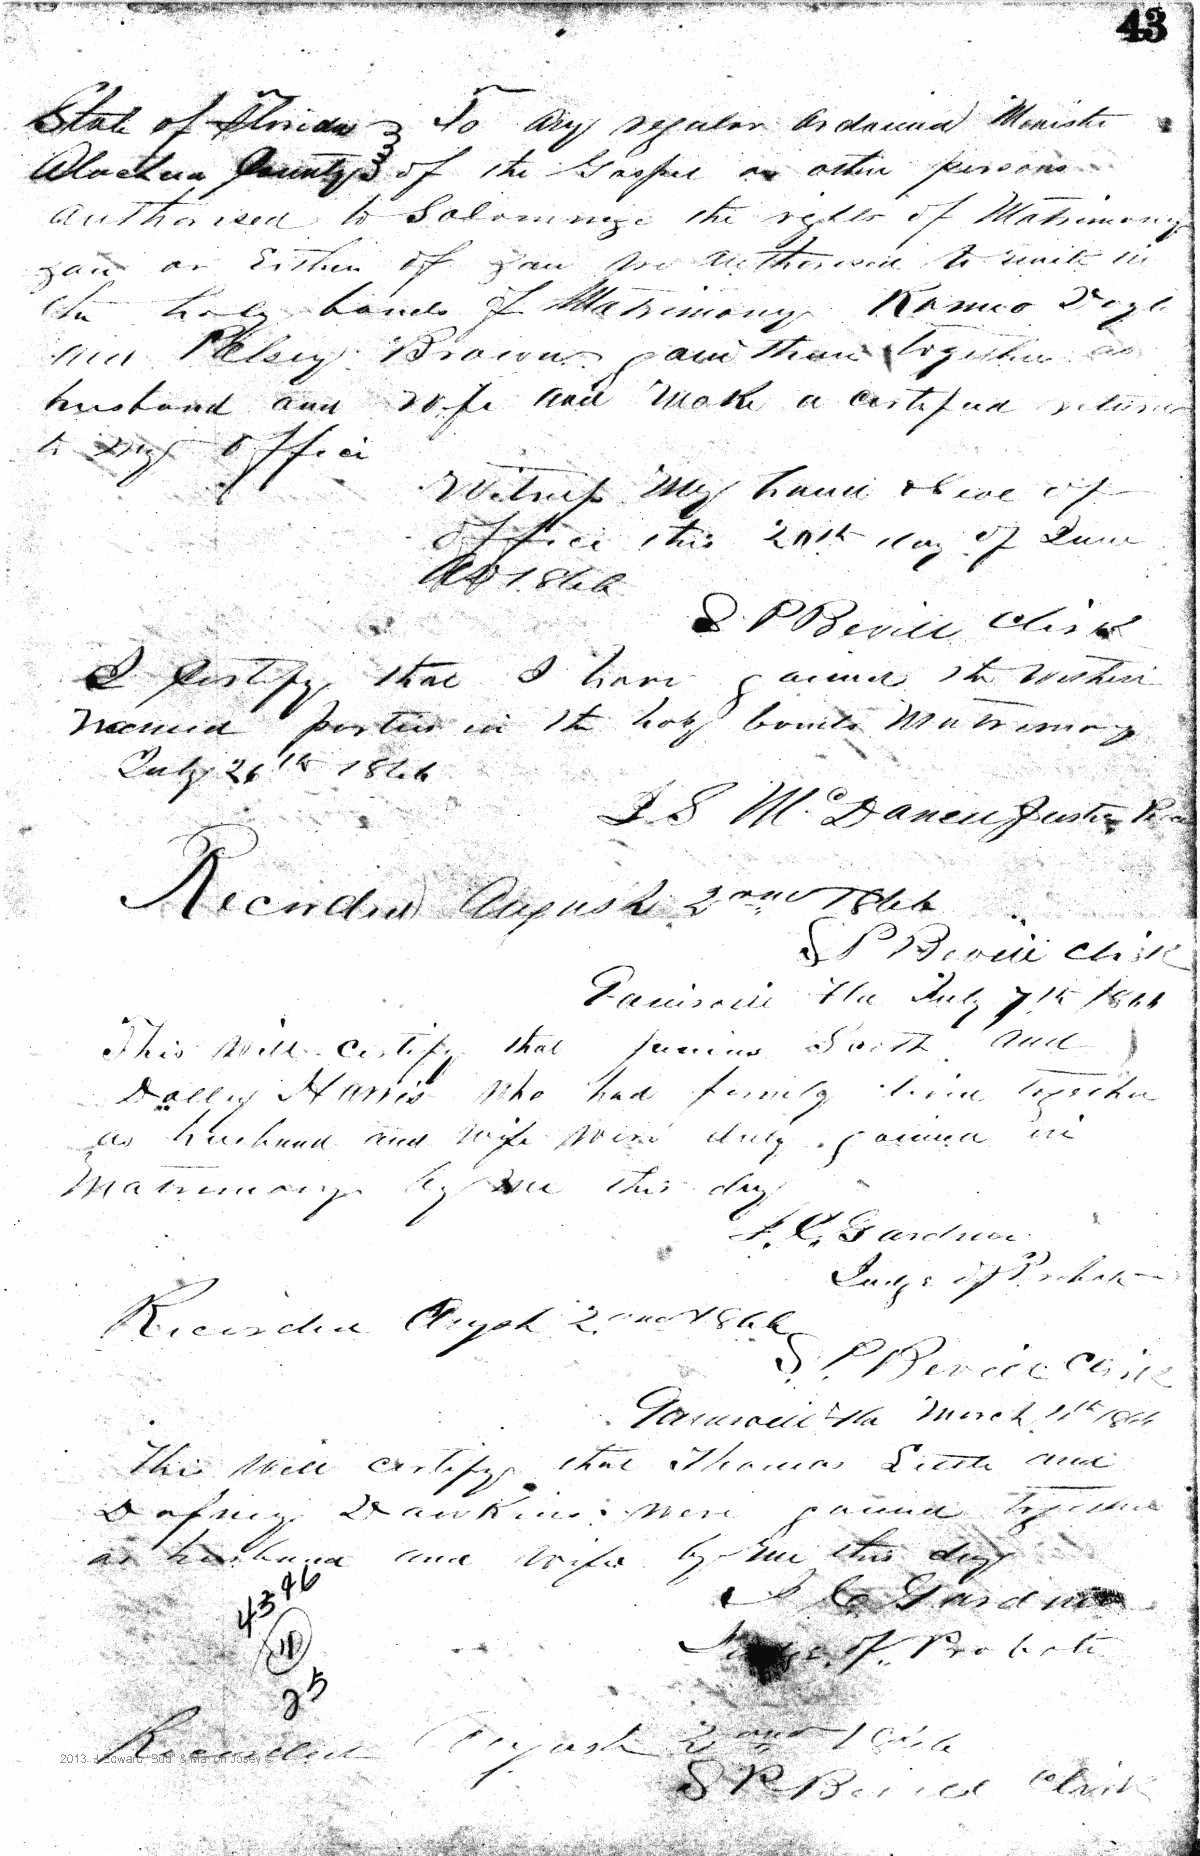 43
State of Florida } To any regular ordained Ministe
Alachua County } of the Gospel or other persons
authorised to Solomnize the rights of Matrimony
you or Either of you are authorised to unite in
the holy bonds of Matrimony Romeo Doyl
and Brown them together as
husband and wife and make a certified return
to my office
Witness My hand & Seal of
office this day of June
AD 1866
S P Bevill Clerk
I Certify that I have joined the within
named parties in the holy bonds Matrimony
July 26th 1866
I S McDanell Justice
Recorded August 2nd 1866
S P Bevill Clerk
Gainsville Fla July 7th 1866
This will certify that and
Dolley Harris who had lived together
as husband and wife were duly joined in
Matrimony by me this day
J. C. Gardner
Judge of Probate
Recorded Augst 2nd 1866
S. P. Bevill Clerk
Gainsville Fla March 11th 1866
This will certify that Thomas Little and
Dafney Dawkins were joined together
as husband and wife by me this day
J C Gardner
Judge of Probate
43 46
10
25
Recorded August 2nd 1866
2013 J Edward "Bud" & Marion Josey ©
S P Bevill Clerk